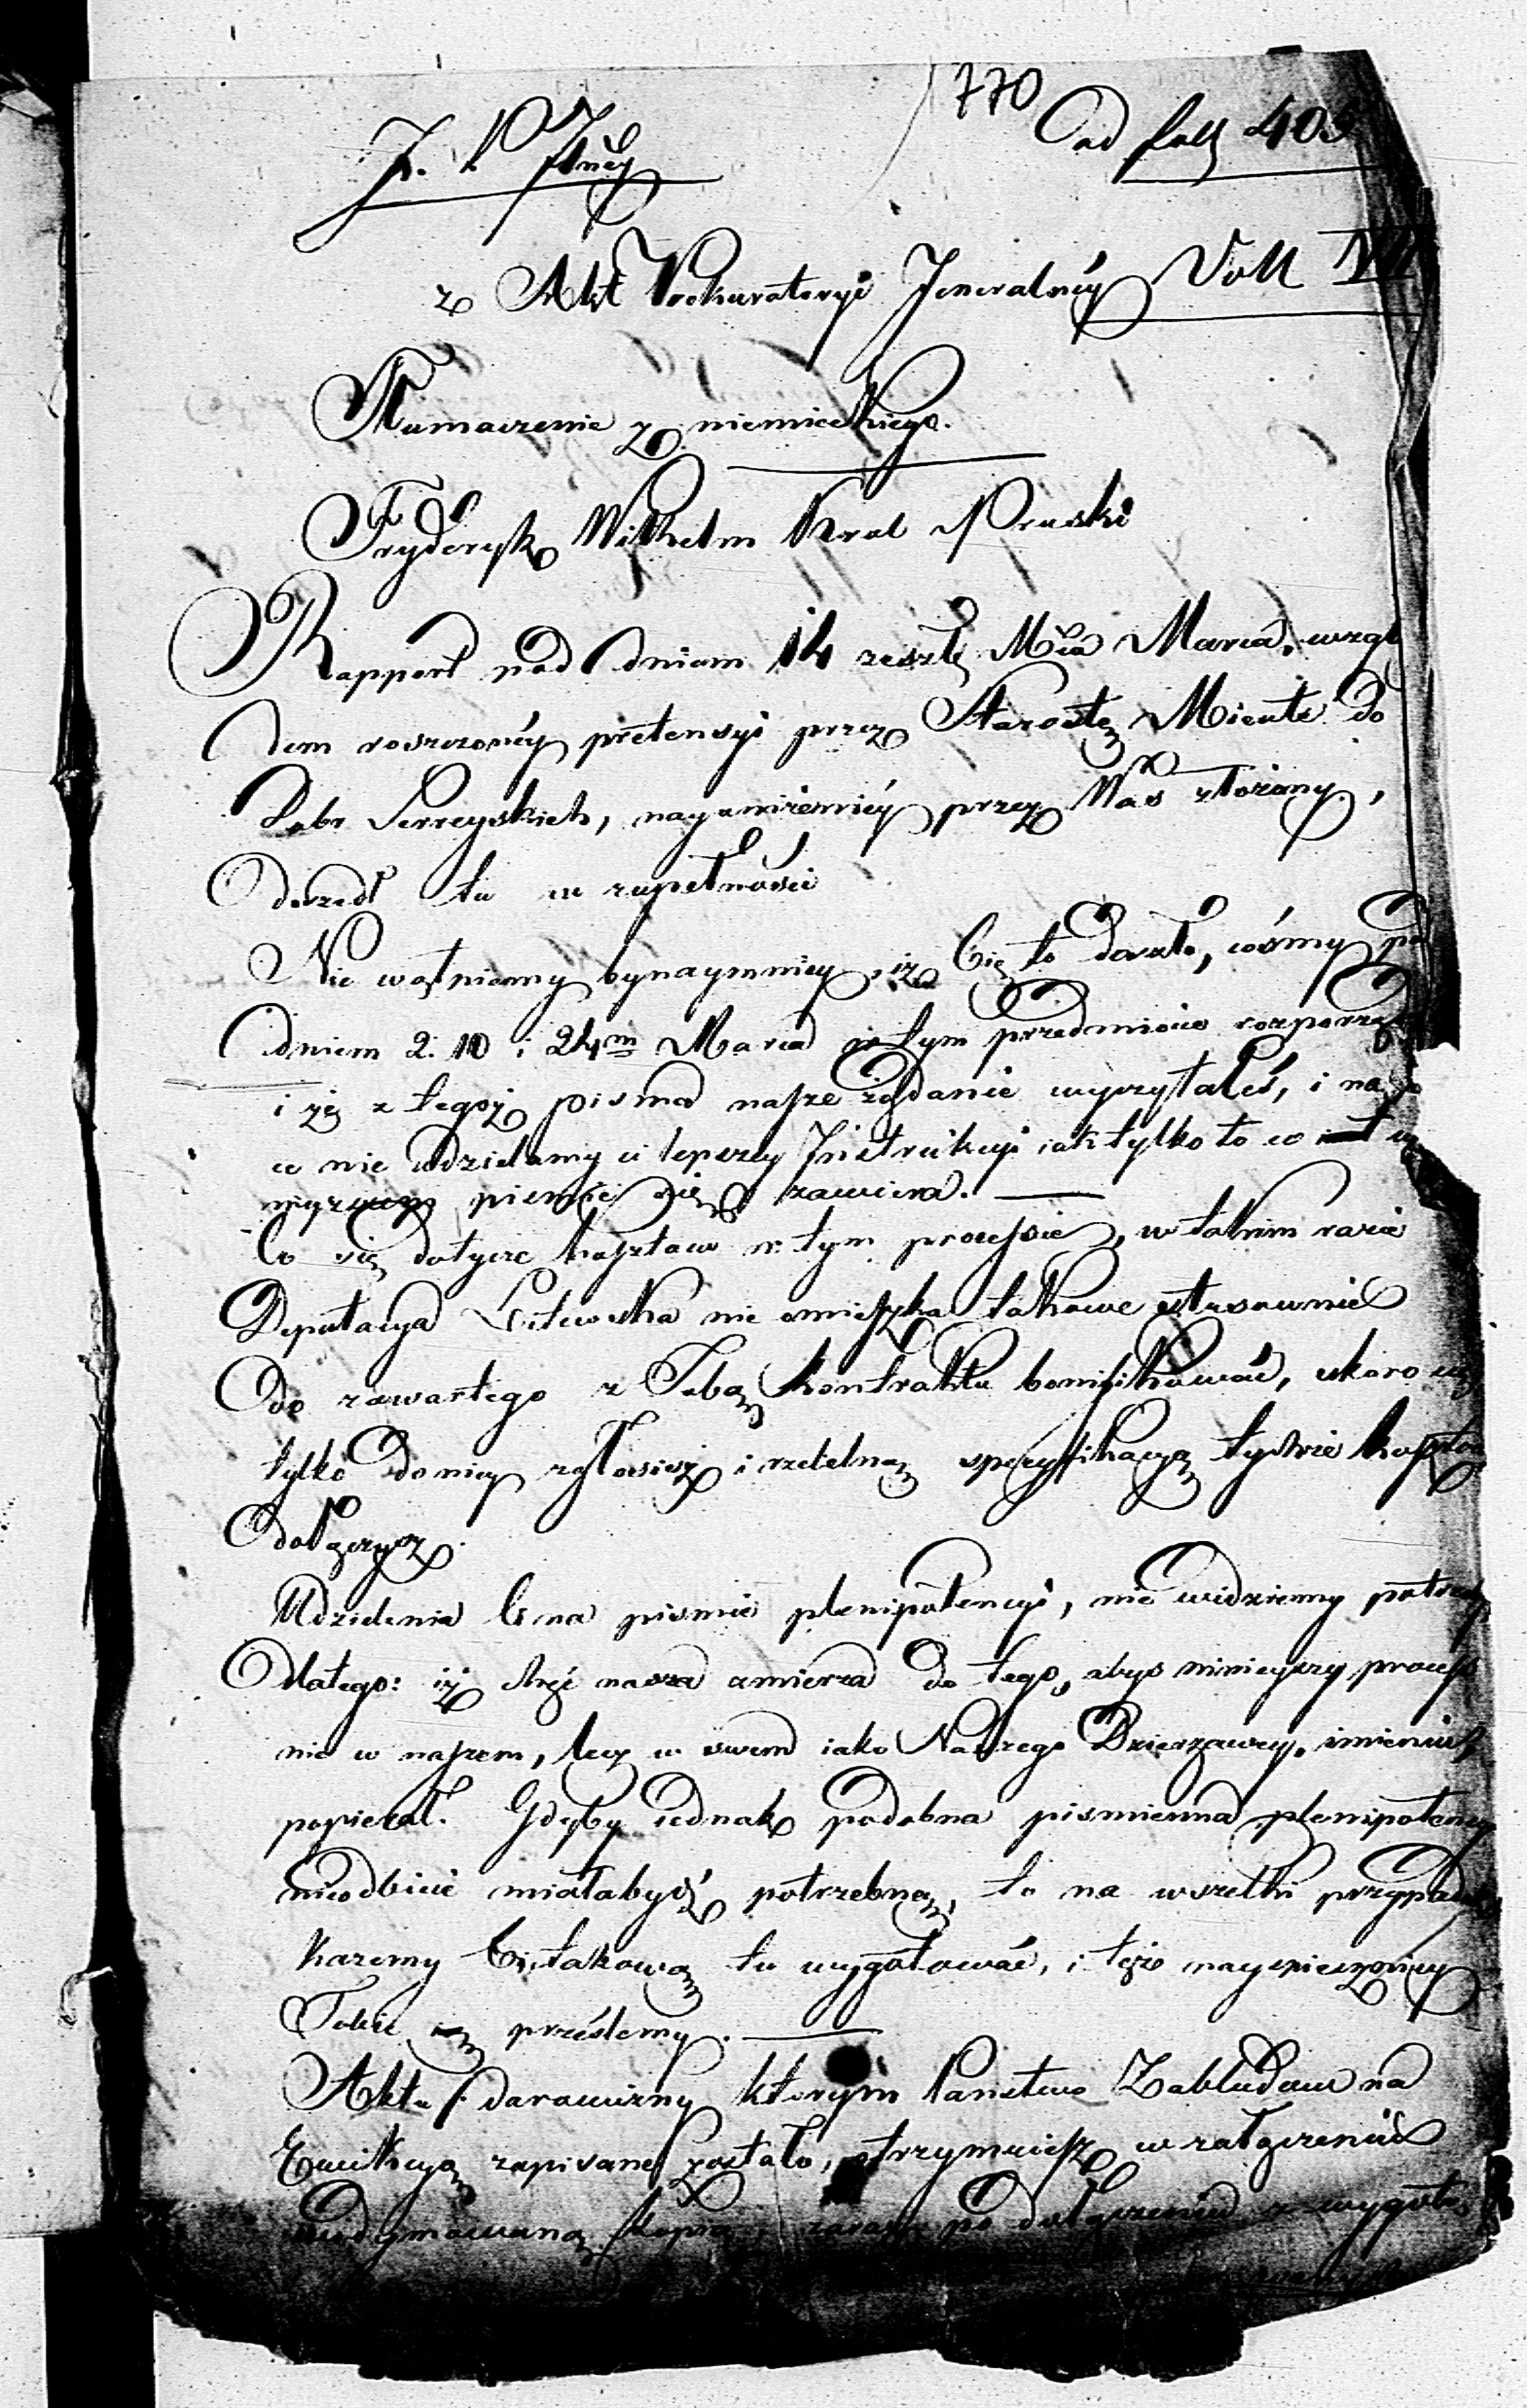 770
ad foll 405
z Akt Prokuratoryi Jeneralnéy Voll VII
Tłumaczenie z niemieckiego.
Fryderyk Wilhelm Krol Pruski
Rapport pod dniem 14 zeszłę Mca Marca, wzglę
dem roszczonéy pretensyi przez Starostę Mirute do
Dobr Serreyskich, nayuniżeniéy przez Was złożony,
doszedł tu w zupełności
Nie wątpiemy bynaymniey, iż Cię to doszło, cośmy pod
dniem 2. 10 i 24m Marca w tym przedmiocie rozporzą
i że z tegoż pisma nasze żądanie wyczytałeś, i na
nie udzielamy ci lepszey Instrukcyi iak tylko to co
piśmie się zawiera.
Co się dotycze kosztow w tym processie, w takim razie
Deputacya Litewska nie omieszka takowe stosownie
do zawartego z Tobą kontraktu bonifikować, skoro się
tylko do niey zgłosisz i rzetelną specyfikacyą tychże kosztow
dołączysz.
Udzielenia Ci na pismie plenipotencyi, nie widziemy potrzeby
dlatego: iż chęć nasza zmierza do tego, abys ninieyszy process
nie w naszem, lecz w swem iako Naszego Dzierzawcy, imieniu
popierał. Gdyby iednak podobna pismienna plenipotencya
nieodbicie miałabyć potrzebną, to na wszelki przypadek
każemy Ci takową tu wygotować, i też nayspieszniey
Tobie prześlemy.
Aktu darowizny którym Państwo Zabłudow na
Ewikcyą zapisane zostało, otrzymuiesz w załączeniu
widymowaną kopią, zaraz po dołączeniu